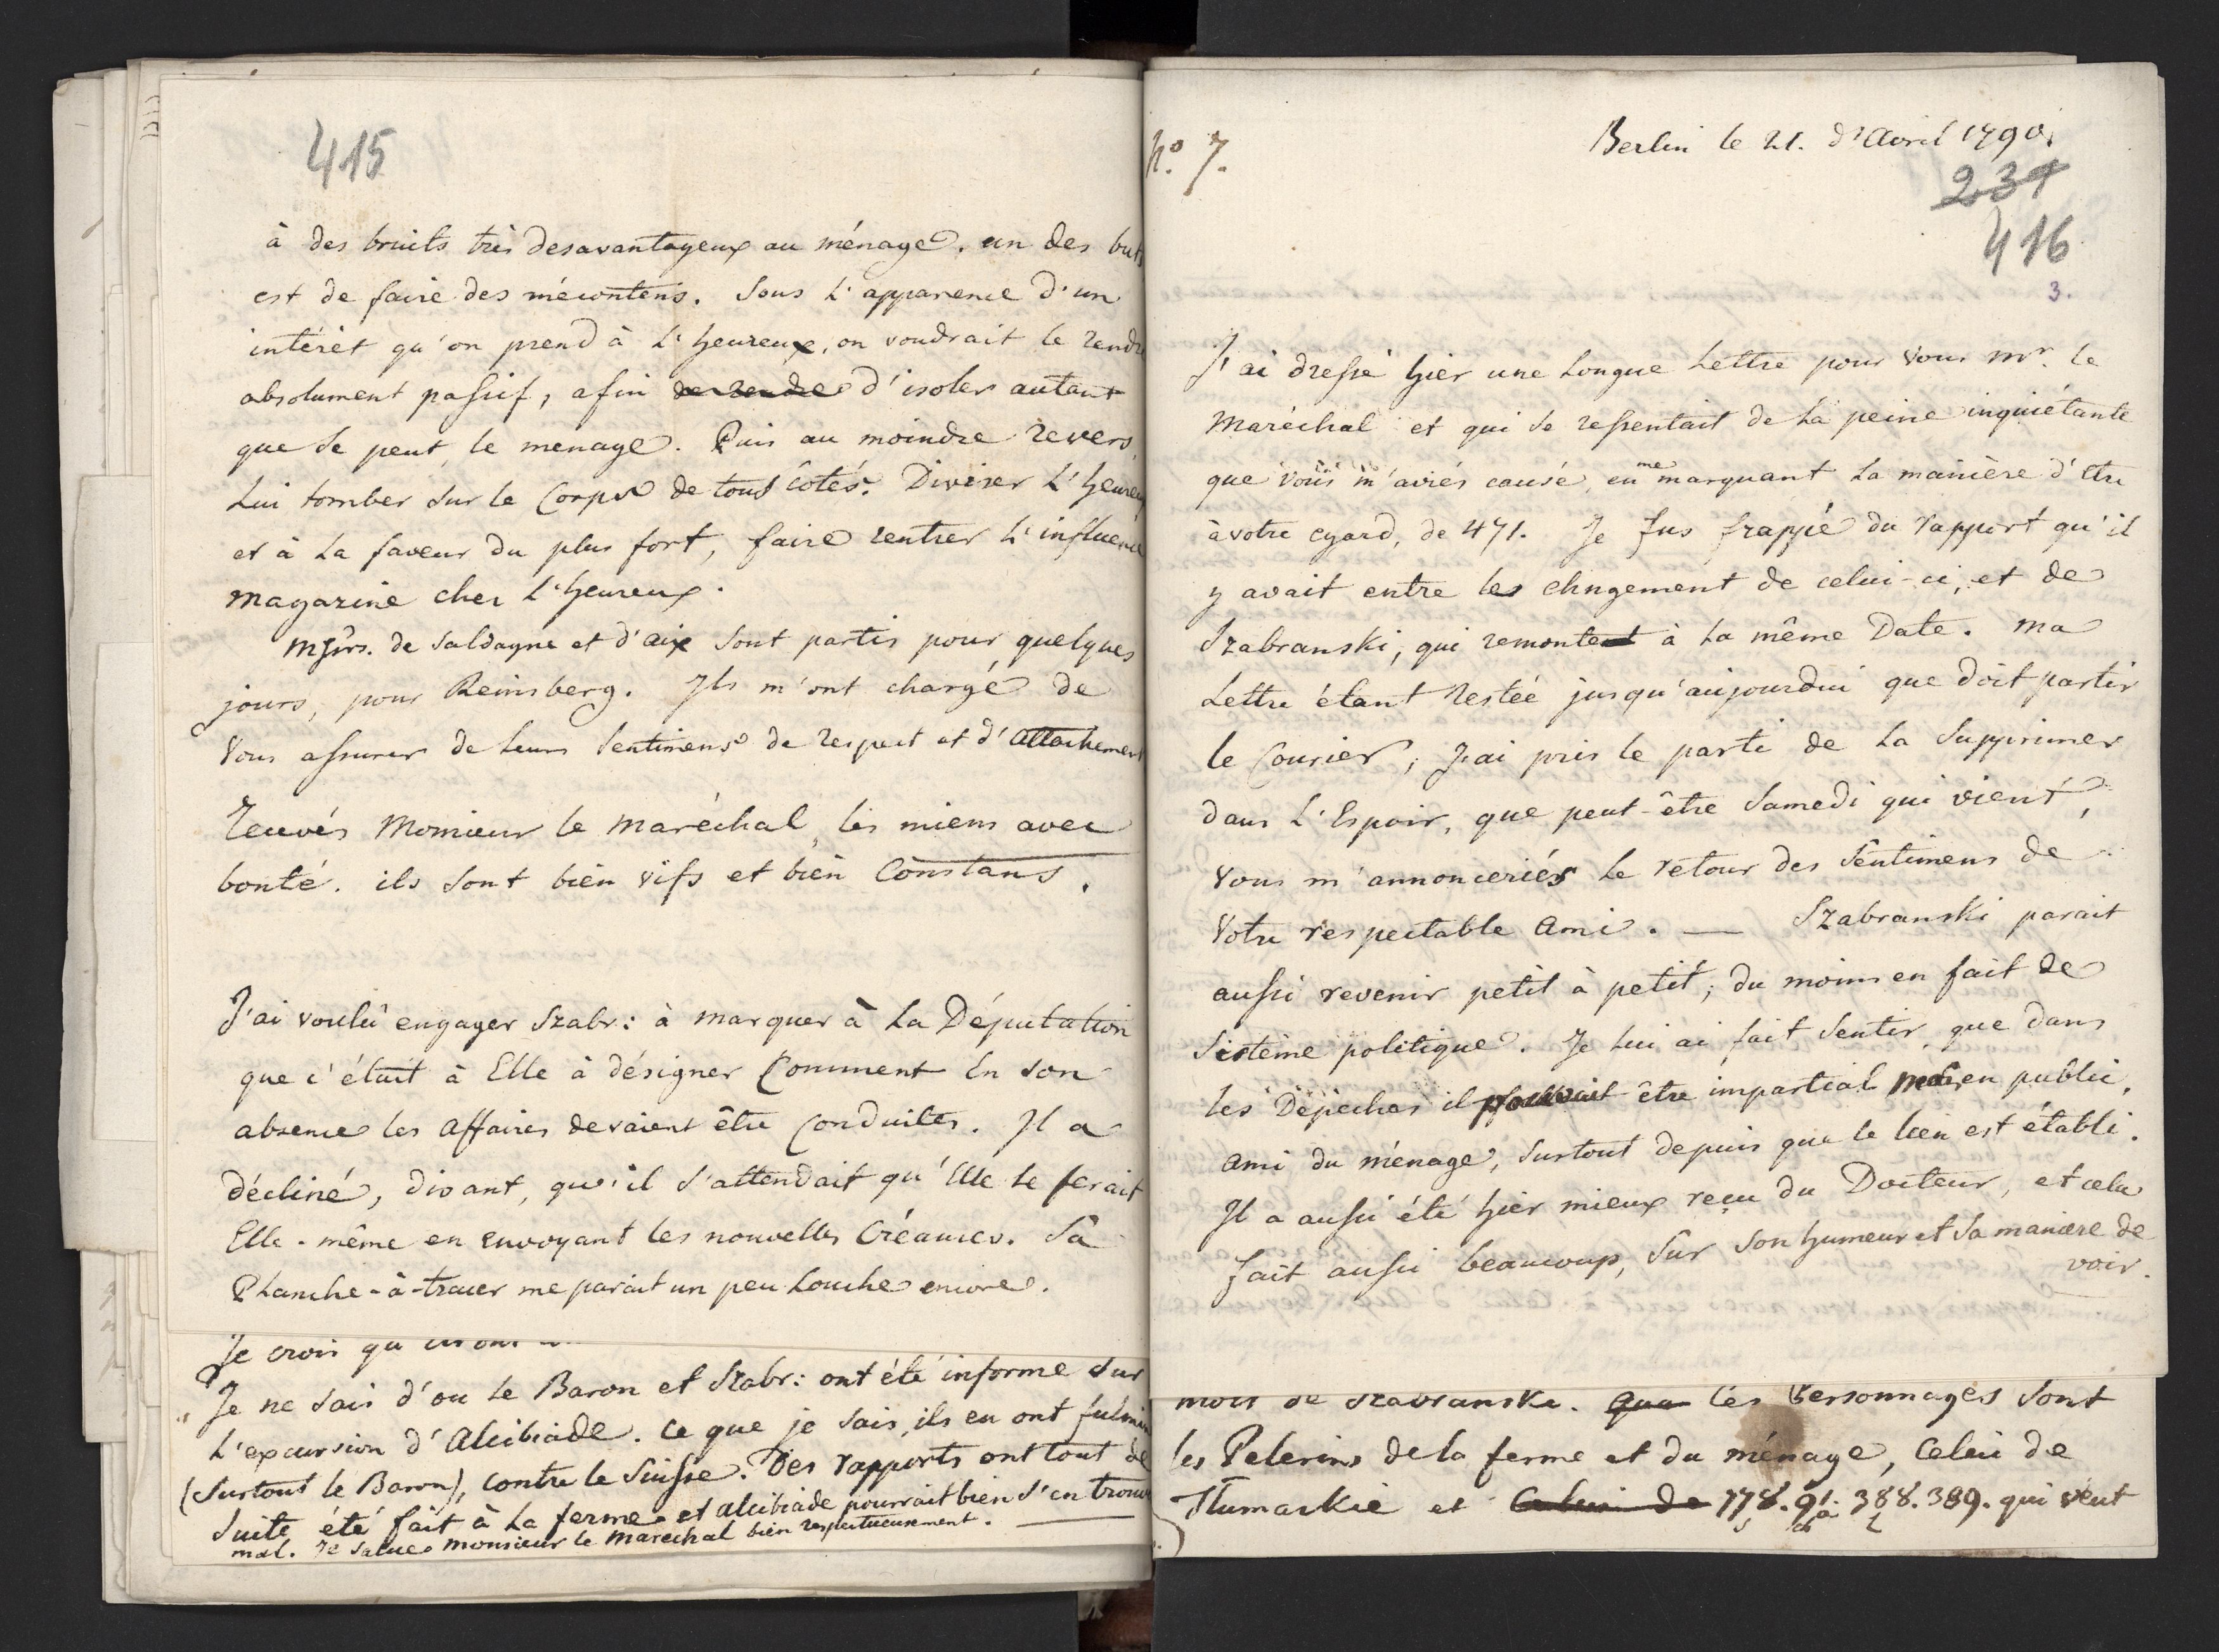 415
à des bruits très desavantageux au ménage. un des buts
est de faire des mécontens. Sous L'apparence d'un
intérêt qu'on prend à L'heureux, on voudrait le rendre
absolument passif, afin de rendre d'isoler autant
que se peut, le menage. Puis au moindre revers,
Lui tomber sur le Corps de tous côtés. Diviser L'heureux
et à La faveur du plus fort, faire rentrer L'influence
magazine chez L'heureux.
Msrs. de Saldagne et d'aix sont partis pour quelques
jours, pour Reinsberg. Ils m'ont chargé de
Vous assurer de Leurs Sentimens de respect et d'attachement
recevés Monsieur le maréchal, les miens avec
bonté. ils sont bien vifs et bien Constans.
J'ai voulû engager Szabr: à marquer à La Députation
que c'était à Elle à désigner Comment En son
absence les affaires devaient être Conduites. Il a
décliné, disant, qu'il s'attendait qu'Elle le ferait
Elle-même en envoyant les nouvelles Créances. Sa
Planche-à-tracer me parait un peu Louche encore.
Je crois qu
Je ne sais d'ou le Baron et Szabr: ont été informe sur
L'excursion d'Alcibiade. Ce que je sais, ils en ont fulminé
(surtout le Baron), contre le Suisse. Des rapports ont tout de
Suite été fait à La ferme et alcibiade pourrait bien s'en trouver
mal. Je salue monsieur le marechal bien respectueusement.
No. 7.
Berlin le 21. d'Avril 1790.
237
416
3.
J'ai dressé hier une Longue Lettre pour Vous Mr. le
Maréchal et qui se ressentait de La peine inquiétante
que vous m'aviés causé, en me marquant La manière d'Etre
à votre egard, de 471. Je fus frappé du rapport qu'il
y avait entre les chngement de celui-ci, et de
Szabranski, qui remontent à La même Date. Ma
Lettre étant restée jusqu'aujourdui que doit partir
le Courier, J'ai pris le parti de La Supprimer
dans L'Espoir, que peut-être Samedi qui vient,
Vous m'annonceriés Le retour des Sentimens de
Votre respectable Ami. — Szabranski parait
aussi revenir petit à petit; du moins en fait de
Sistème politique. Je Lui ai fait Sentir, que dans
les Dépeches il pouvait être impartial mais en public,
Ami du ménage, surtout depuis que le lien est établi.
Il a aussi été hier mieux reçu du Docteur, et cela
fait aussi beaucoup, Sûr Son humeur et Sa maniere de
voir.
mois de Szabranski. Que les Personnages sont
les Pelerins de la ferme et du ménage, Celui de
Tlumaskie et Celui de 778. 91. 388. 389. qui veut